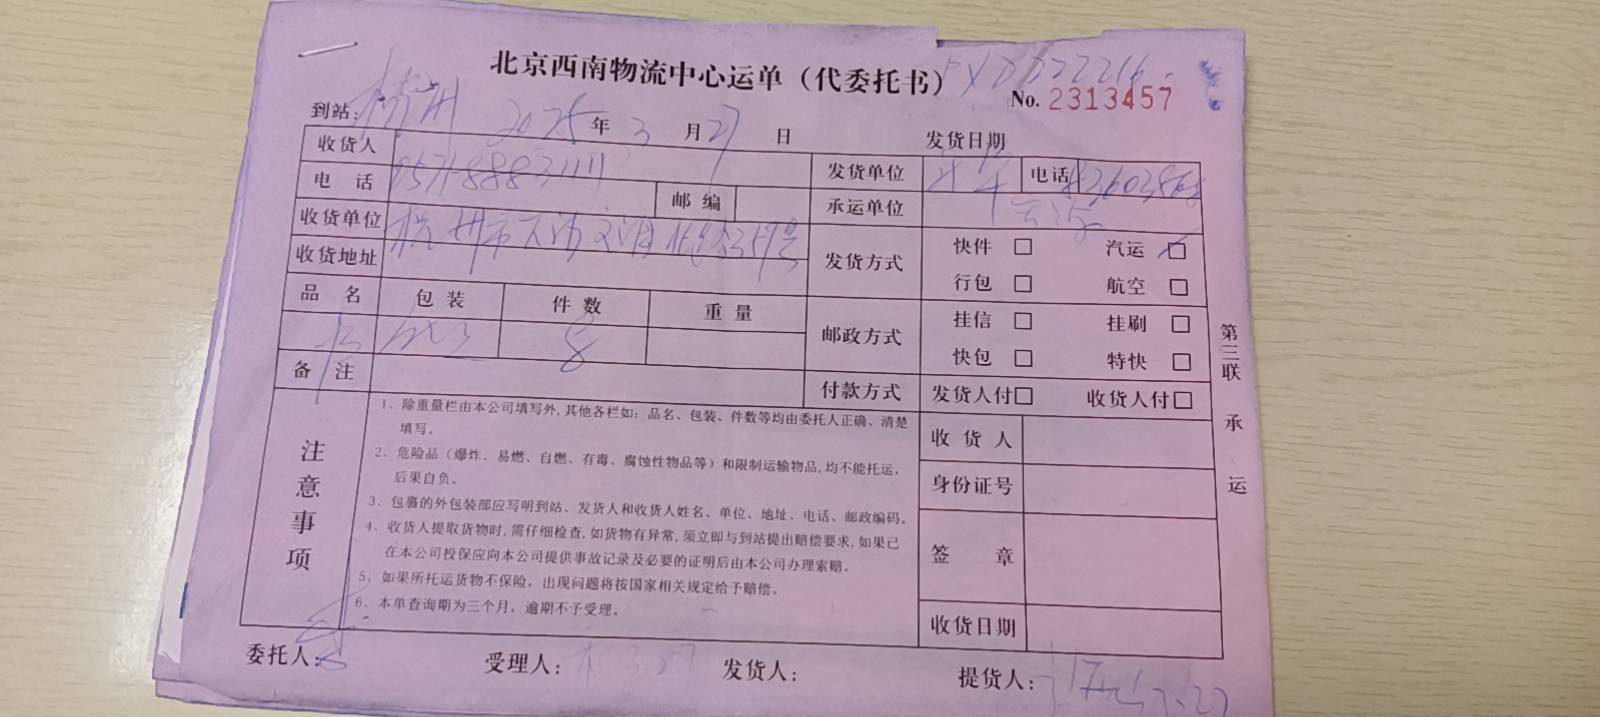 北京西南物流中心运单（代委托书）
No. 2313457
到站：杭州 2025年3月27日 发货日期
收货人 发货单位 电话
电话 0571-88831111 邮编 承运单位
收货单位 杭州市
收货地址 发货方式 快件 □ 汽运 □
行包 □ 航空 □
品名 包装 件数 重量 邮政方式 挂信 □ 挂刷 □
书 8 快包 □ 特快 □
备注 付款方式 发货人付□ 收货人付□
注意事项
1、除重量栏由本公司填写外,其他各栏如：品名、包装、件数等均由委托人正确、清楚
填写。
2、危险品（爆炸、易燃、自燃、有毒、腐蚀性物品等）和限制运输物品,均不能托运，
后果自负。
3、包裹的外包装部应写明到站、发货人和收货人姓名、单位、地址、电话、邮政编码。
4、收货人提取货物时,需仔细检查,如货物有异常,须立即与到站提出赔偿要求,如果已
在本公司投保应向本公司提供事故记录及必要的证明后由本公司办理索赔。
5、如果所托运货物不保险，出现问题将按国家相关规定给予赔偿。
6、本单查询期为三个月，逾期不予受理。
收货人
身份证号
签章
收货日期
第三联 承运
委托人： 受理人： 3.27 发货人： 提货人： 3.27